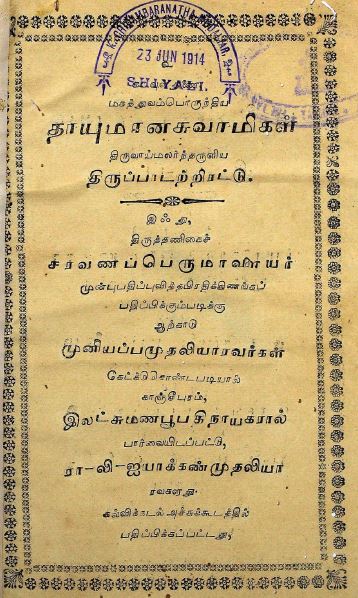 23 JUN 1914
மகத்துவம்பொருந்திய
தாயுமானசுவாமிகள்
திருவாய்மலர்ந்தருளிய
திருப்பாடற்றிரட்டு.
இஃது,
திருத்தணிகைச்
சரவணப்பெருமாளையர்
முன்புபதிப்புவித்தபிரதிக்கிணங்கப்
பதிப்பிக்கும்படிக்கு
ஆற்காடு
முனியப்பமுதலியாரவர்கள்
கேட்டுக்கொண்டபடியால்
காஞ்சீபுரம்,
இலட்சுமணபூபதிநாயகரால்
பார்வையிடப்பட்டு,
ரா-லி-ஐயாக்கண்முதலியார்
ரவகளது.
கல்விக்கடல் அச்சுக்கூடத்தில்
பதிப்பிக்கப்பட்டது,